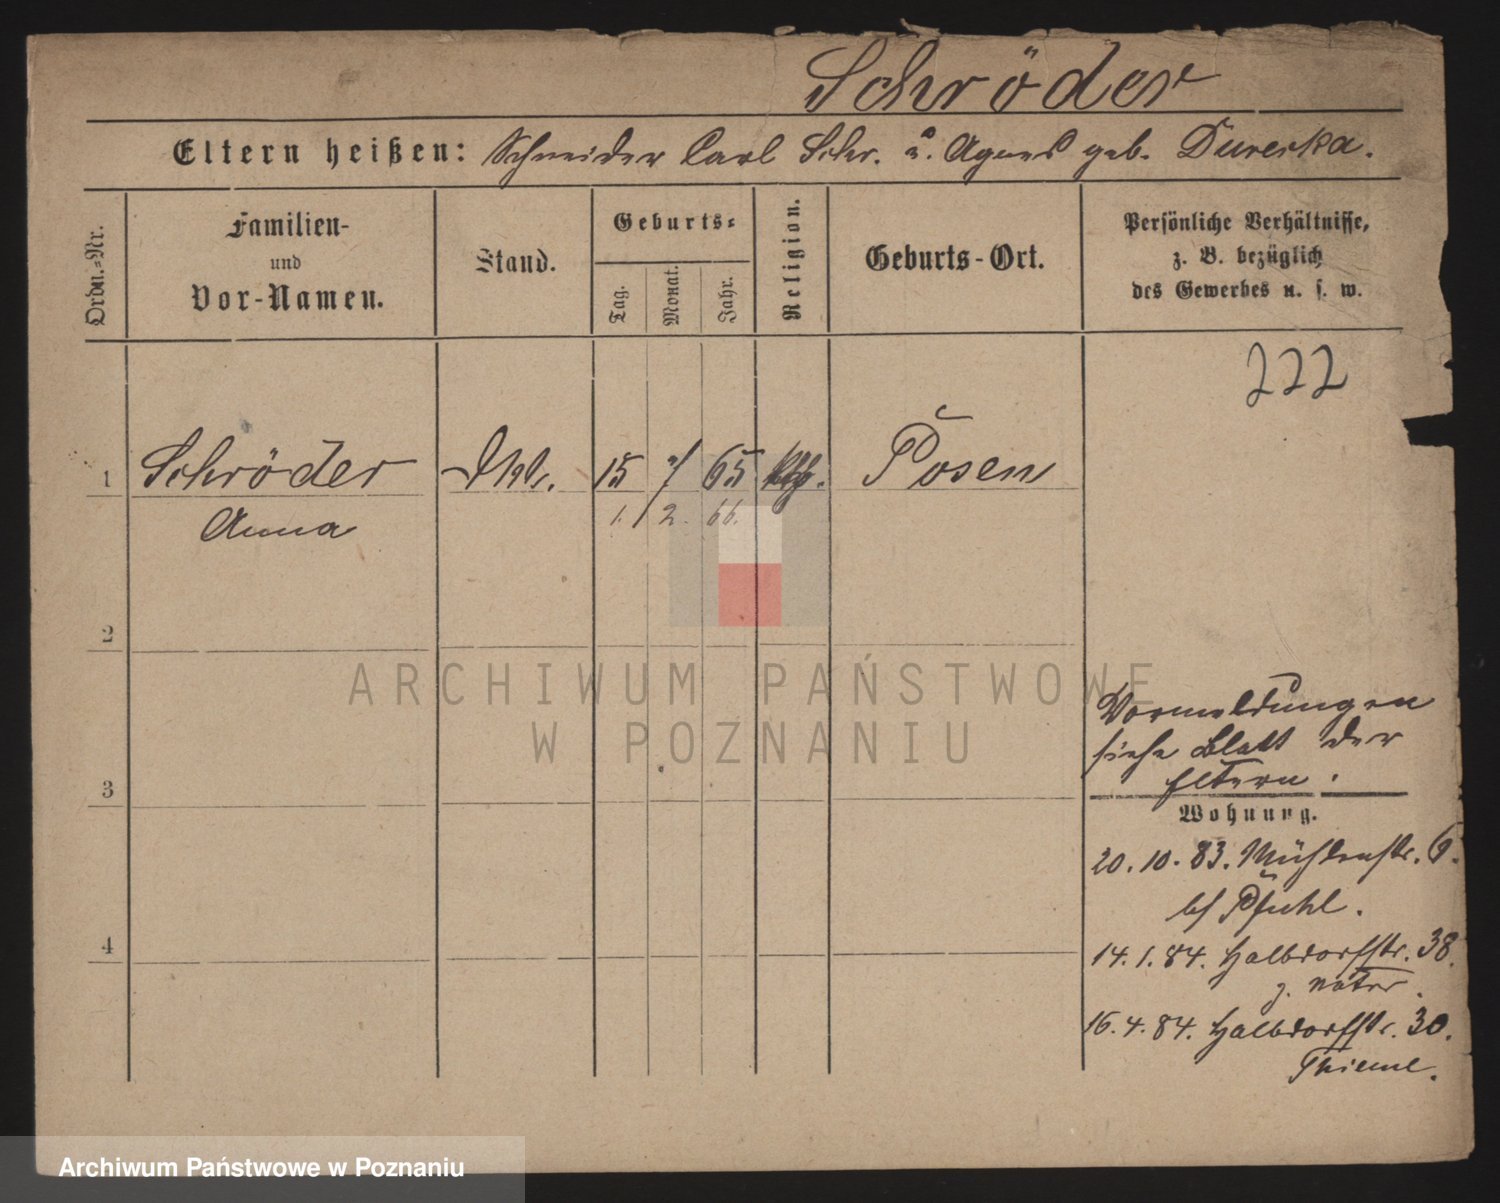 Schröder
Eltern heißen: Schneider Carl Schr. u. Agnes geb. Dureska.
Ordn.=Nr.
Familien-
und
Vor-Namen.
Stand.
Geburts=
Tag.
Monat.
Jahr.
Religion.
Geburts-Ort.
Persönliche Verhältnisse,
z. B. bezüglich
des Gewerbes u. s. w.
222
1 Schröder 15 7 65 kth. Posen
Anna 1. 2. 66.
2
3
4
Vormeldungen
siehe Blatt der
Eltern.
Wohnung.
20. 10. 83. Mühlenstr. 6.
bei Pfuhl.
14. 1. 84. Halbdorfstr. 38.
z. Vater.
16. 4. 84. Halbdorfstr. 30.
Thieme.
ARCHIWUM PAŃSTWOWE
W POZNANIU
Archiwum Państwowe w Poznaniu